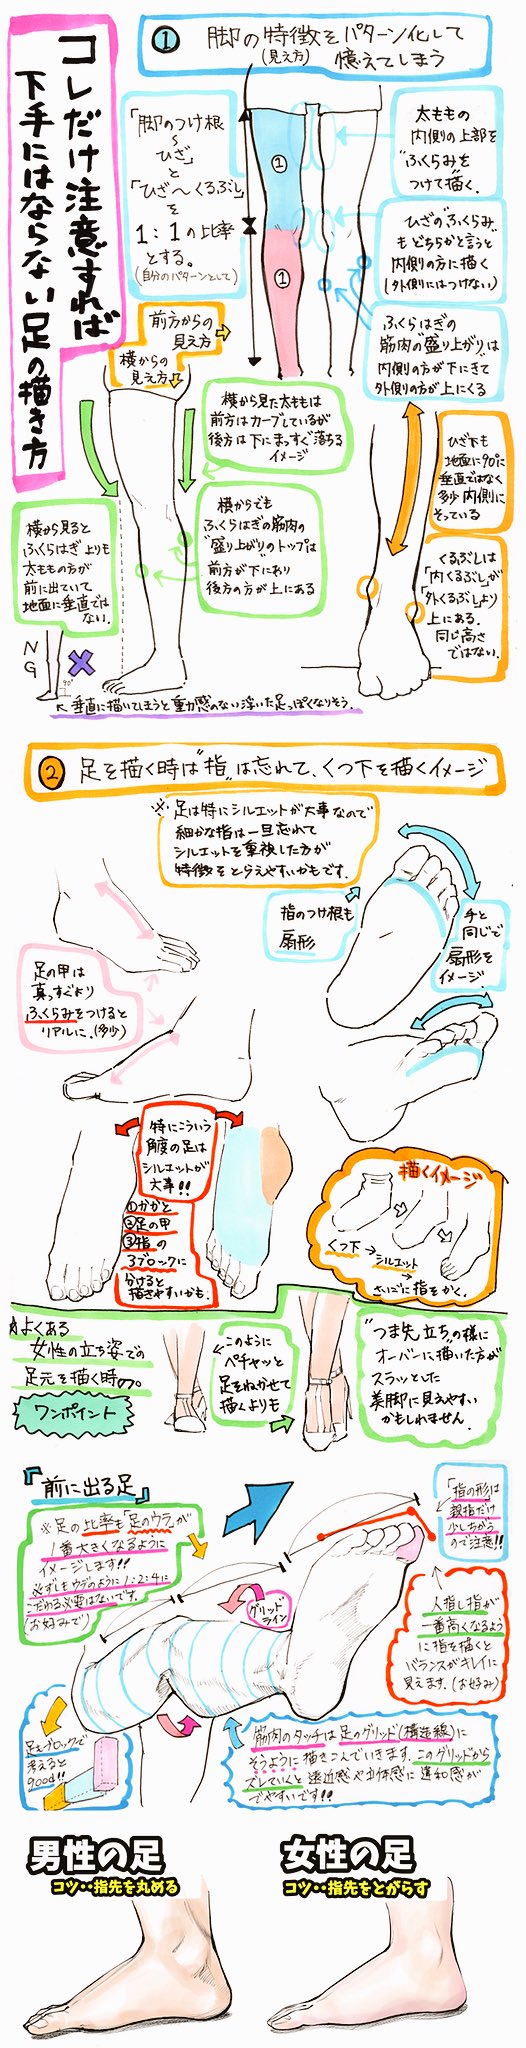 コレだけ注意すれば
下手にはならない足の描き方
① 脚の特徴をパターン化して
(見え方) 憶えてしまう
「脚のつけ根
〜
ひざ」
と
「ひざ〜くるぶし」
を
1:1の比率
とする。
(自分のパターンとして)
①
①
太ももの
内側の上部を
"ふくらみを"
つけて描く。
ひざの"ふくらみ"
もどちらかと言うと
内側の方に描く
(外側にはつけない)
ふくらはぎの
筋肉の"盛り上がり"は
内側の方が下にきて
外側の方が上にくる
前方からの
見え方
横からの
見え方
横から見た太ももは
前方はカーブしているが
後方は下にまっすぐ落ちる
イメージ
横からでも
ふくらはぎの筋肉の
"盛り上がり"のトップは
前方が下にあり
後方の方が上にある
横から見ると
ふくらはぎよりも
太ももの方が
前に出ていて
地面に垂直では
ない。
NG
90°
垂直に描いてしまうと重力感のない浮いた足っぽくなりそう。
ひざ下も
地面に90°に
垂直ではなく
多少内側に
そっている
くるぶしは
「内くるぶし」が
「外くるぶし」より
上にある。
同じ高さ
ではない。
② 足を描く時は"指"は忘れて、くつ下を描くイメージ
※足は特にシルエットが大事なので
細かな指は一旦忘れて
シルエットを重視した方が
特徴をとらえやすいかもです。
指のつけ根も
扇形
手と
同じで
扇形を
イメージ
足の甲は
真っすぐより
ふくらみをつけると
リアルに。(多少)
特にこういう
角度の足は
シルエットが
大事!!
①かかと
②足の甲
③指の
3ブロックに
分けると
描きやすいかも.
描くイメージ
くつ下→シルエット
→
さいごに指をかく。
☆よくある
女性の立ち姿での
足元を描く時の。
ワンポイント
このように
ペチャッと
足をねかせて
描くよりも
"つま先立ち"の様に
オーバーに描いた方が
スラッとした
美脚に見えやすい
かもしれません.
「前に出る足」
※足の比率も「足のウラ」が
1番大きくなるように
イメージします!!
必ずしもウデのように1:2:4に
こだわる必要はないです。
(お好みで)
グリッド
ライン
「指の形」は
親指だけ
少しちがう
ので注意!!
人指し指が
一番高くなるよう
に指を描くと
バランスがキレイに
見えます.(お好み)
足もブロックで
考えると
good!!
筋肉のタッチは足のグリッド(構造線)に
そうように描きこんでいきます.このグリッドから
ズレていくと遠近感や立体感に違和感が
でやすいです!!
男性の足
コツ‥指先を丸める
女性の足
コツ‥指先をとがらす